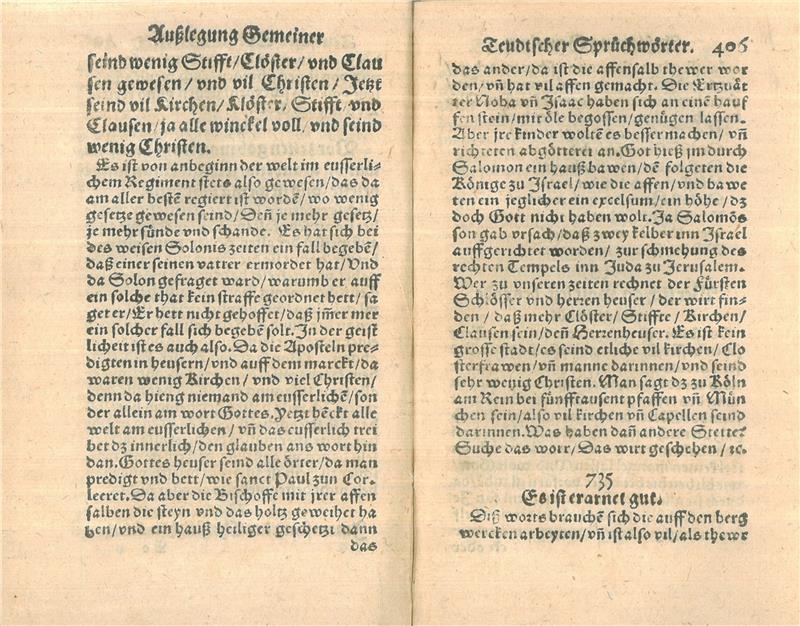 Außlegung Gemeiner
seind wenig Stifft/ Clöster/ vnd Clau
sen gewesen / vnd vil Christen / Jetzt
seind vil Kirchen/ Klöster/ Stifft/ vnd
Clausen/ ja alle winckel voll/ vnd seind
wenig Christen.
Es ist von anbeginn der welt im eusserli-
chem Regiment stets also gewesen/ das da
am aller besten regiert ist wordē/ wo wenig
gesetze gewesen seind/ Deñ je mehr gesetz/
je mehr sünde vnd schande. Es hat sich bei
des weisen Solonis zeiten ein fall begebē/
daß einer seinen vatter ermordet hat/ Vnd
da Solon gefraget ward/ warumb er auff
ein solche that kein straffe geordnet hett/ sa
get er/ Er hett nicht gehoffet/ daß jm̄er mer
ein solcher fall sich begebē solt. In der geist
licheit ist es auch also. Da die Aposteln pre-
digten in heusern/ vnd auff dem marckt/ da
waren wenig Kirchen/ vnd viel Christen/
denn da hieng niemand am eusserlichē/ son
der allein am wort Gottes. Jetzt hēckt alle
welt am eusserlichen / vñ das eusserlich trei
bet dz innerlich/ den glauben ans wort hin
dan. Gottes heuser seind alle örter/ da man
predigt vnd bett/ wie sanct Paul zun Cor-
leeret. Da aber die Bischoffe mit jrer affen
salben die steyn vnd das holtz geweihet ha
ben/ vnd ein hauß heiliger geschetzt dann
das
Teudtscher Sprüchwörter. 406
das ander/ da ist die affensalb thewer wor
den/ vñ hat vil affen gemacht. Die Ertzuät
ter Noha vñ Isaac haben sich an einē hauf
fen stein/ mit öle begossen/ genügen lassen.
Aber jre kinder woltē es besser machen/ vñ
richteten abgötterei an. Got hieß jm durch
Salomon ein hauß bawen/ dē folgeten die
Könige zu Israel/ wie die affen/ vnd bawe
ten ein jeglicher ein excelsum/ ein höhe / dz
doch Gott nicht haben wolt. Ja Salomōs
son gab vrsach/ daß zwey kelber inn Israel
auffgerichtet worden/ zur schmehung des
rechten Tempels inn Juda zu Jerusalem.
Wer zu vnseren zeiten rechnet der Fürsten
Schlösser vnd herren heuser / der wirt fin-
den / daß mehr Clöster/ Stiffte / Kirchen/
Clausen sein/ deñ Herrenheuser. Es ist kein
grosse stadt/ es seind etliche vil kirchen/ Clo
sterfrawen/ vñ manne darinnen/ vnd seind
sehr wenig Christen. Man sagt dz zu Köln
am Rein bei fünfftausent pfaffen vñ Mün
chen sein/ also vil kirchen vñ Capellen seind
darinnen. Was haben dañ andere Stette?
Suche das wort/ Das wirt geschehen / ꝛc.
735
Es ist erarnet gut.
Diß worts brauchē sich die auff den berg
wercken arbeyten/ vñ ist also vil/ als thewr